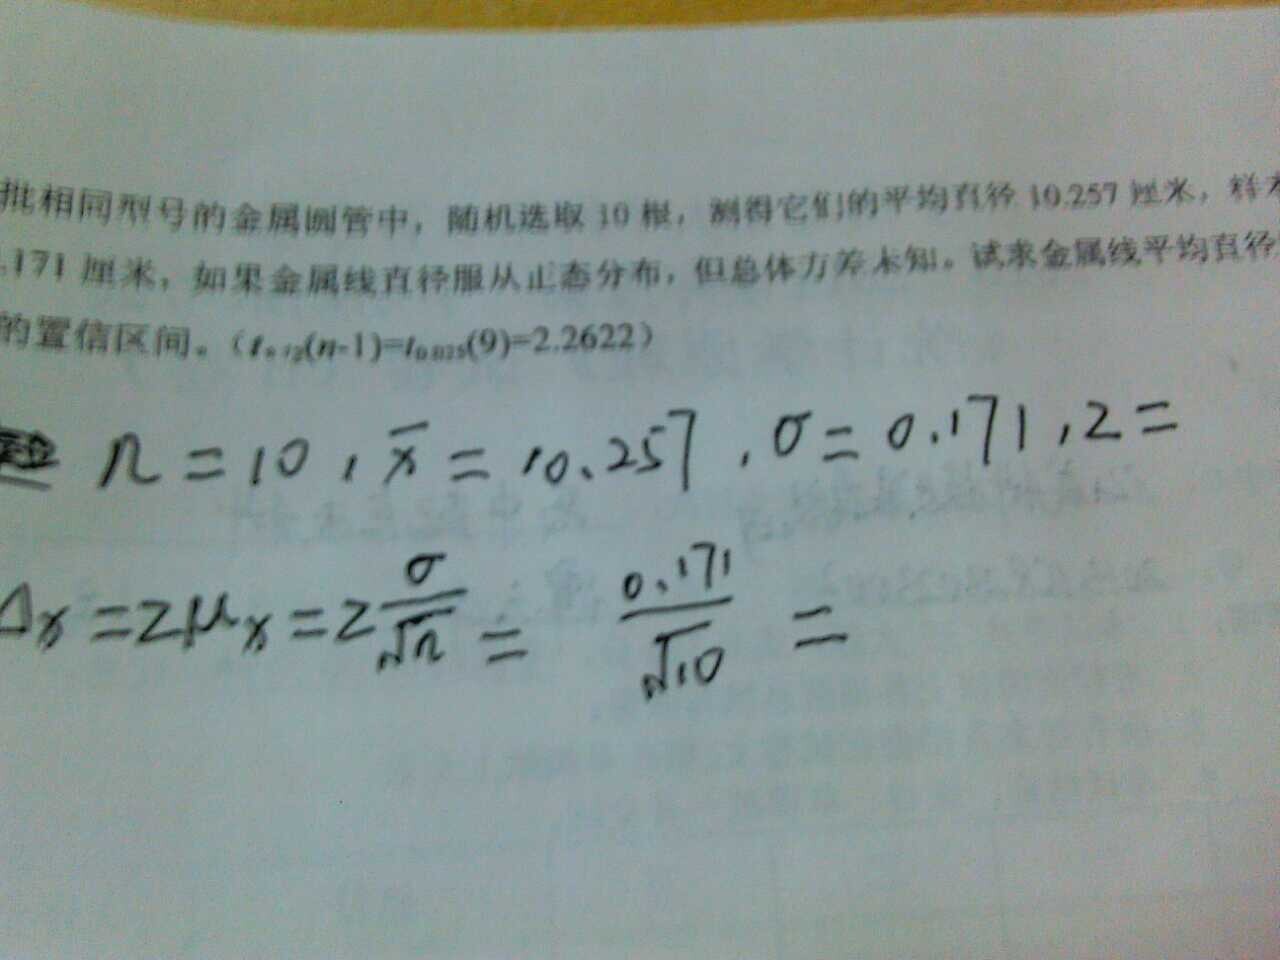 批相同型号的金属圆管中，随机选取 10 根，测得它们的平均直径 10.257 厘米，样本
.171 厘米，如果金属线直径服从正态分布，但总体方差未知。试求金属线平均直径
的置信区间。（tα/2(n-1)=t0.025(9)=2.2622）
n = 10 , x̄ = 10.257 , σ = 0.171 , z =
Δx = zμx = z σ/√n = 0.171/√10 =